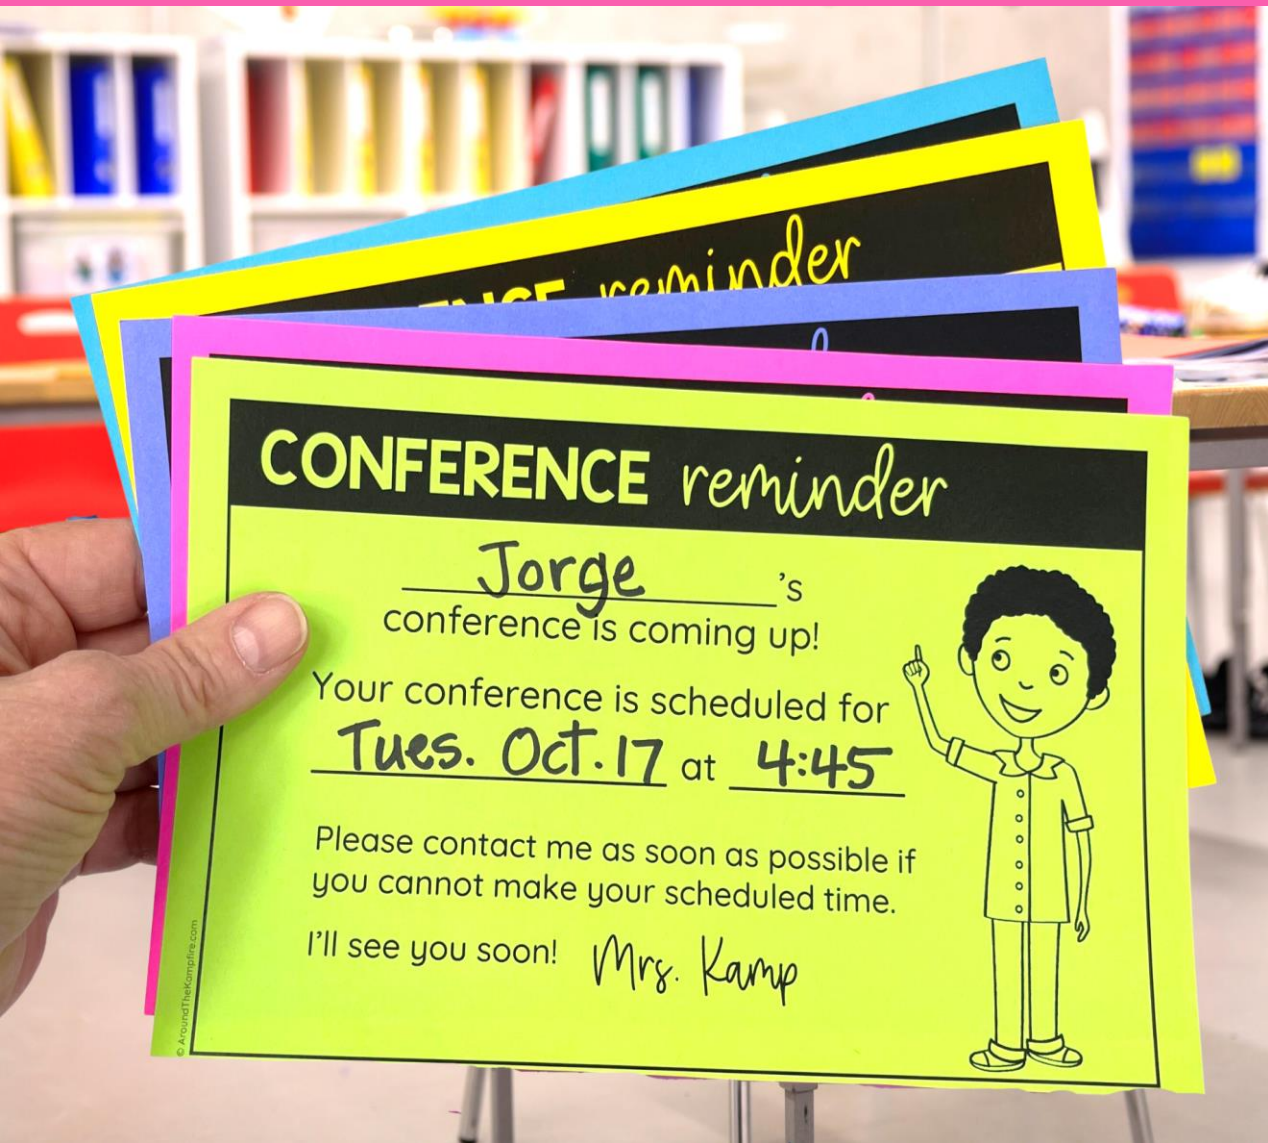 reminder
CONFERENCE reminder
Jorge's
conference is coming up!
Your conference is scheduled for
Tues. Oct. 17 at 4:45
Please contact me as soon as possible if
you cannot make your scheduled time.
I'll see you soon! Mrs. Kamp
© AroundTheKampfire.com